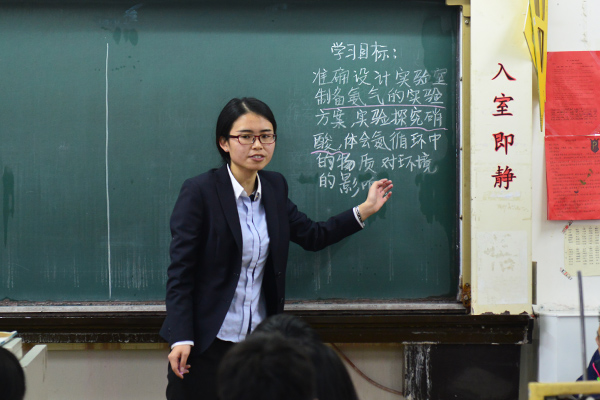 学习目标：
准确设计实验室
制备氨气的实验
方案,实验探究硝
酸,体会氮循环中
的物质对环境
的影响
入室即静